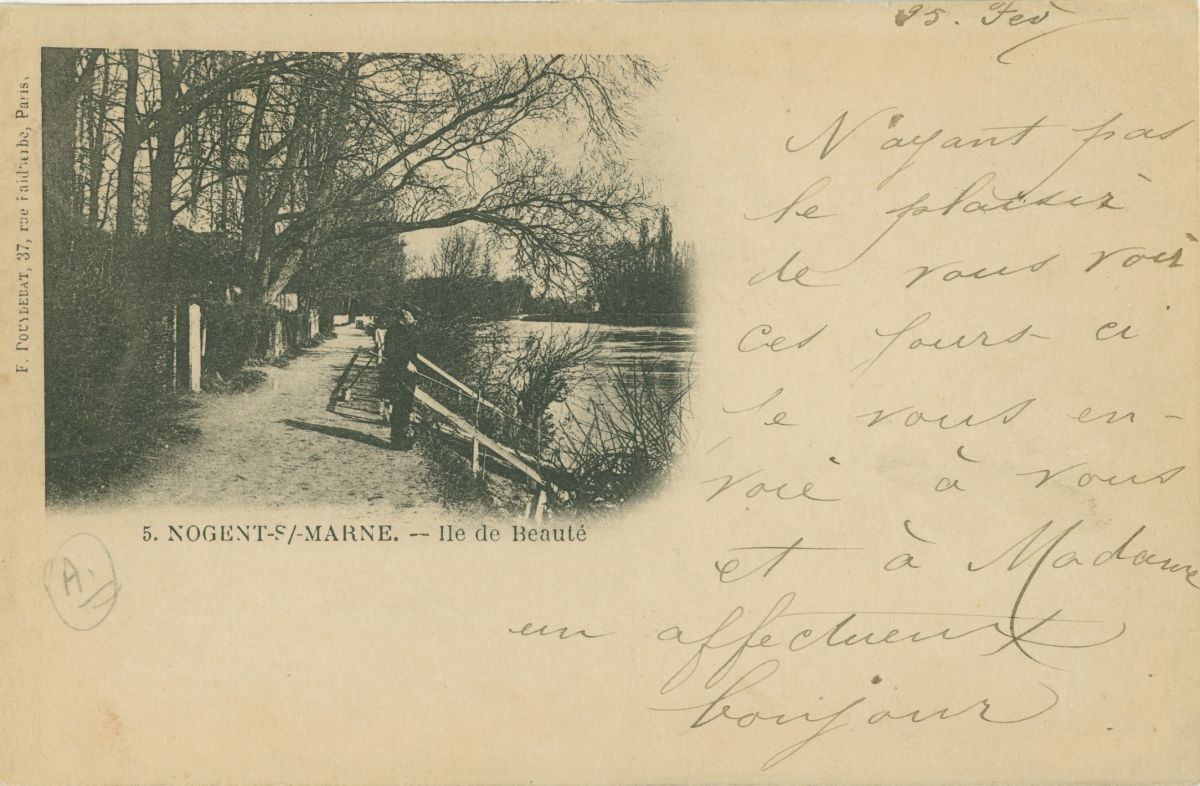 25. Fev
N'ayant pas
le plaisir
de vous voir
ces jours-ci
je vous en-
voie à vous
et à Madame
un affectueux
bonjour
5. NOGENT-S/-MARNE. -- Ile de Beauté
F. POUYDEBAT, 37, rue Faidherbe, Paris.
A.